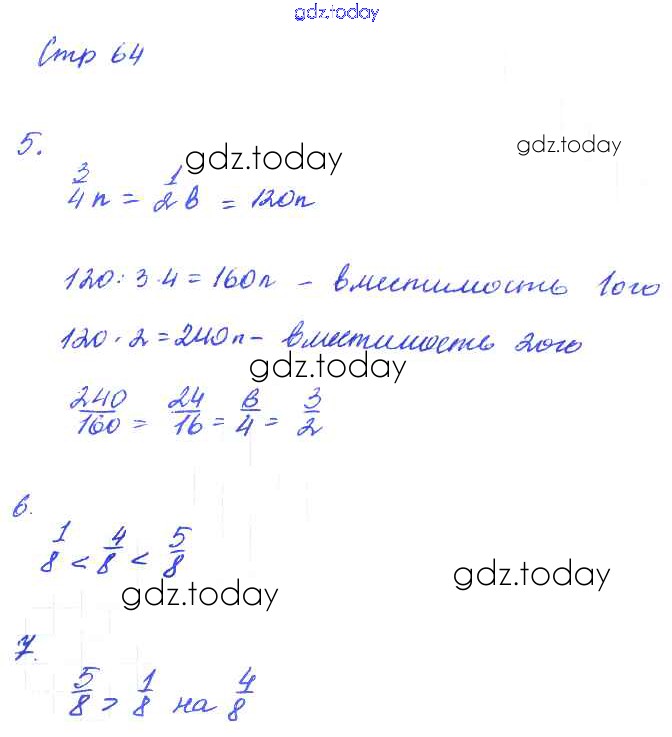 gdz.today
Стр 64
5.
gdz.today
gdz.today
3/4 п = 1/2 в = 120л
120 : 3 · 4 = 160л – вместимость 1ого
120 · 2 = 240л – вместимость 2ого
gdz.today
240/160 = 24/16 = 6/4 = 3/2
6.
1/8 < 4/8 < 5/8
gdz.today
gdz.today
7.
5/8 > 1/8 на 4/8